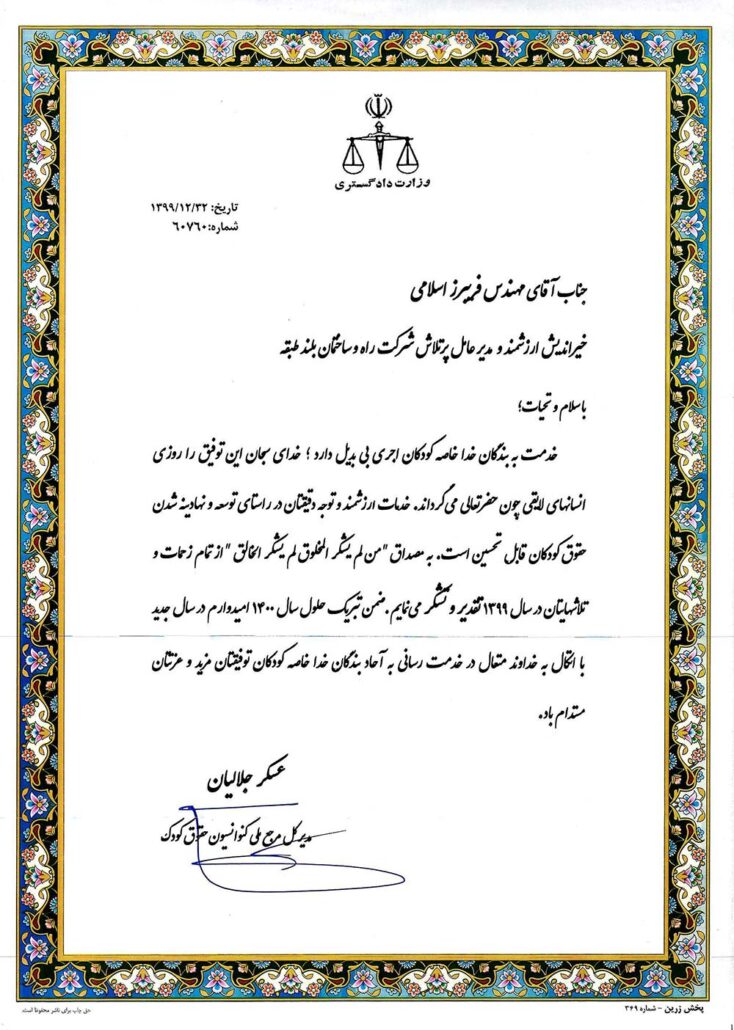 وزارت دادگستری
تاریخ: ۱۳۹۹/۱۲/۳۲
شماره: ۶۰۷۶۰
جناب آقای مهندس فریبرز اسلامی
خیراندیش ارزشمند و مدیر عامل پرتلاش شرکت راه و ساختمان بلند طبقه
با سلام و تحیات؛
خدمت به بندگان خدا خاصه کودکان اجری بی بدیل دارد ؛ خدای سبحان این توفیق را روزی
انسانهای لایقی چون حضرتعالی می گرداند. خدمات ارزشمند و توجه دقیقتان در راستای توسعه و نهادینه شدن
حقوق کودکان قابل تحسین است. به مصداق "من لم یشکر المخلوق لم یشکر الخالق" از تمام زحمات و
تلاشهایتان در سال ۱۳۹۹ تقدیر و تشکر می نمایم. ضمن تبریک حلول سال ۱۴۰۰ امیدوارم در سال جدید
با اتکال به خداوند متعال در خدمت رسانی به آحاد بندگان خدا خاصه کودکان توفیقتان مزید و عزتتان
مستدام باد.
عسکر جلالیان
مدیر کل مرجع ملی کنوانسیون حقوق کودک
پخش زرین - شماره ۳۶۹
حق چاپ برای ناشر محفوظ است.